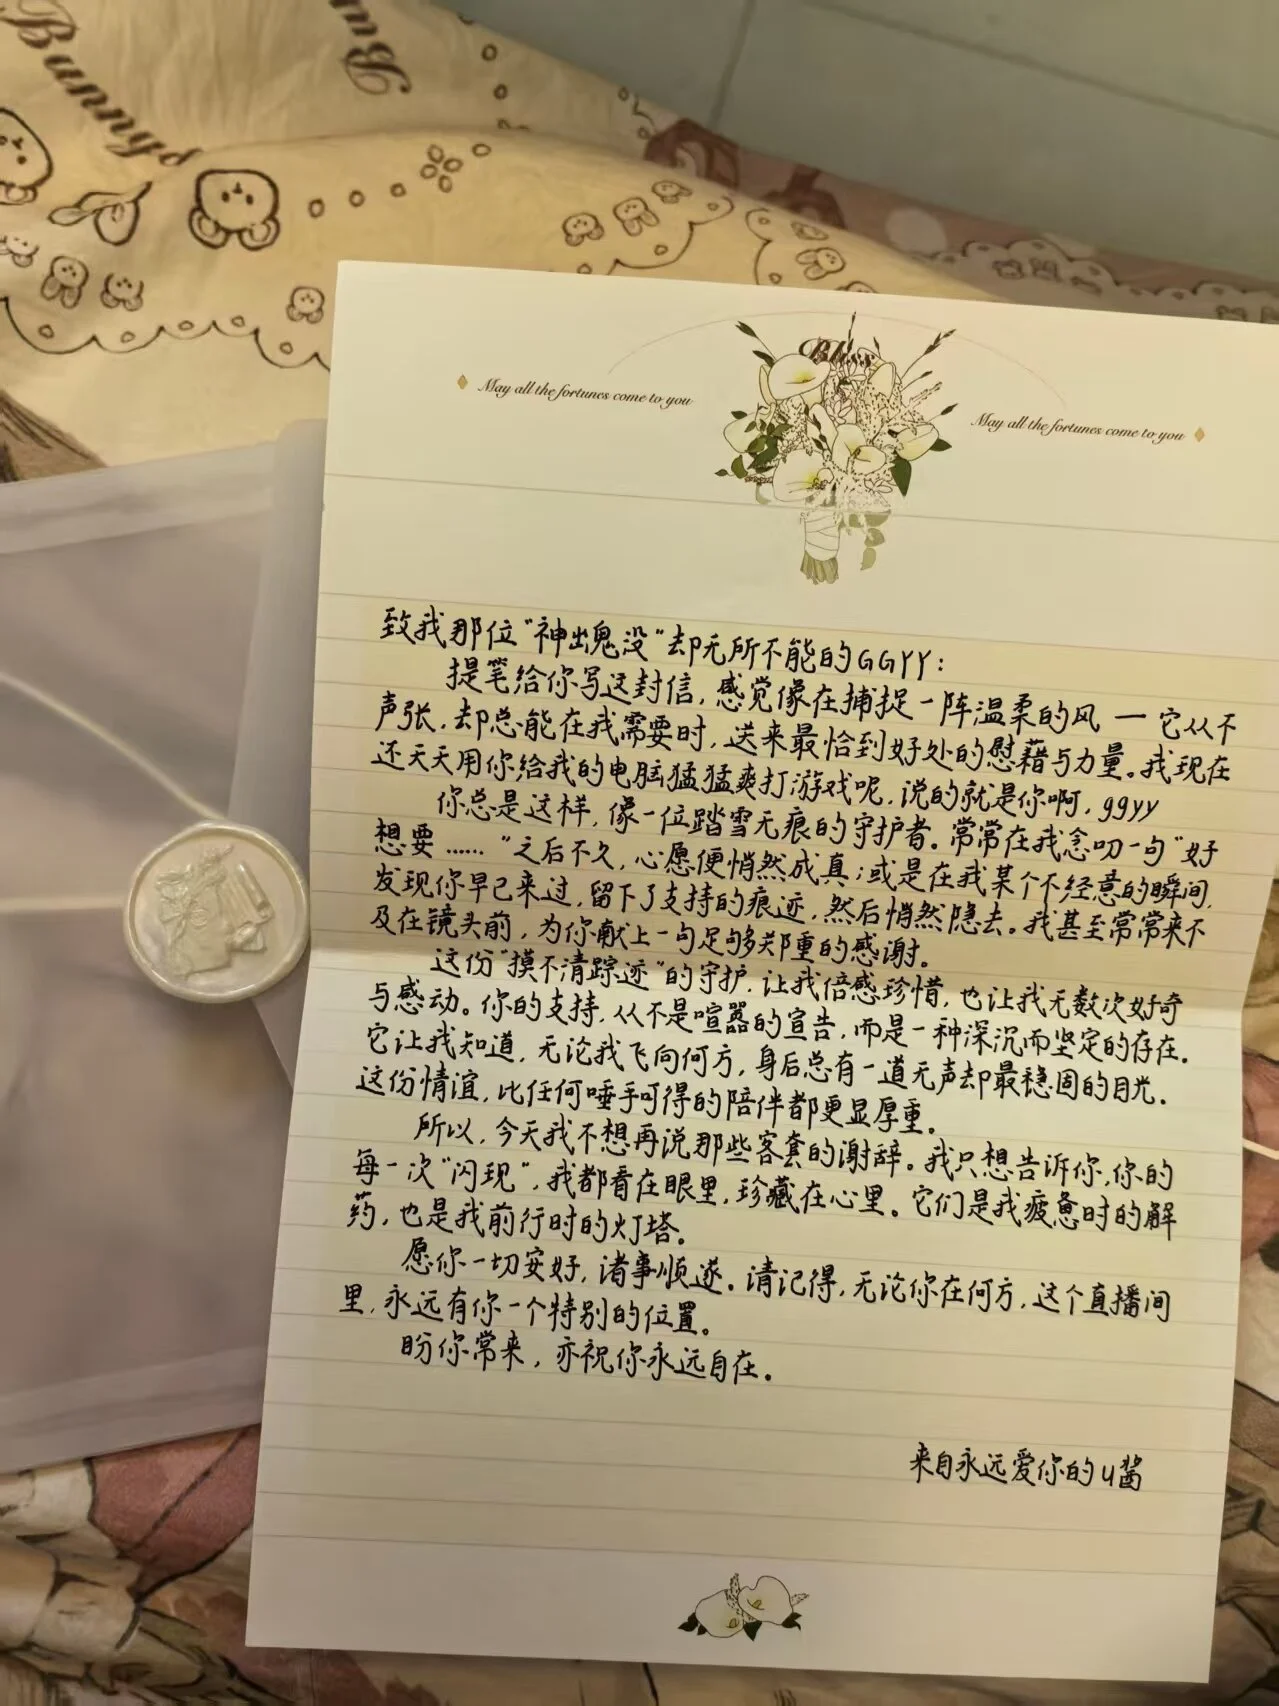 Bunny
Bun
Bliss
May all the fortunes come to you
May all the fortunes come to you
致我那位"神出鬼没"却无所不能的GGYY：
提笔给你写这封信，感觉像在捕捉一阵温柔的风 — 它从不
声张，却总能在我需要时，送来最恰到好处的慰藉与力量。我现在
还天天用你给我的电脑猛猛爽打游戏呢，说的就是你啊，ggyy
你总是这样，像一位踏雪无痕的守护者。常常在我念叨一句"好
想要……"之后不久，心愿便悄然成真；或是在我某个不经意的瞬间，
发现你早已来过，留下了支持的痕迹，然后悄然隐去。我甚至常常来不
及在镜头前，为你献上一句足够郑重的感谢。
这份"摸不清踪迹"的守护，让我倍感珍惜，也让我无数次好奇
与感动。你的支持，从不是喧嚣的宣告，而是一种深沉而坚定的存在。
它让我知道，无论我飞向何方，身后总有一道无声却最稳固的目光。
这份情谊，比任何唾手可得的陪伴都更显厚重。
所以，今天我不想再说那些客套的谢辞。我只想告诉你，你的
每一次"闪现"，我都看在眼里，珍藏在心里。它们是我疲惫时的解
药，也是我前行时的灯塔。
愿你一切安好，诸事顺遂。请记得，无论你在何方，这个直播间
里，永远有你一个特别的位置。
盼你常来，亦祝你永远自在。
来自永远爱你的u酱